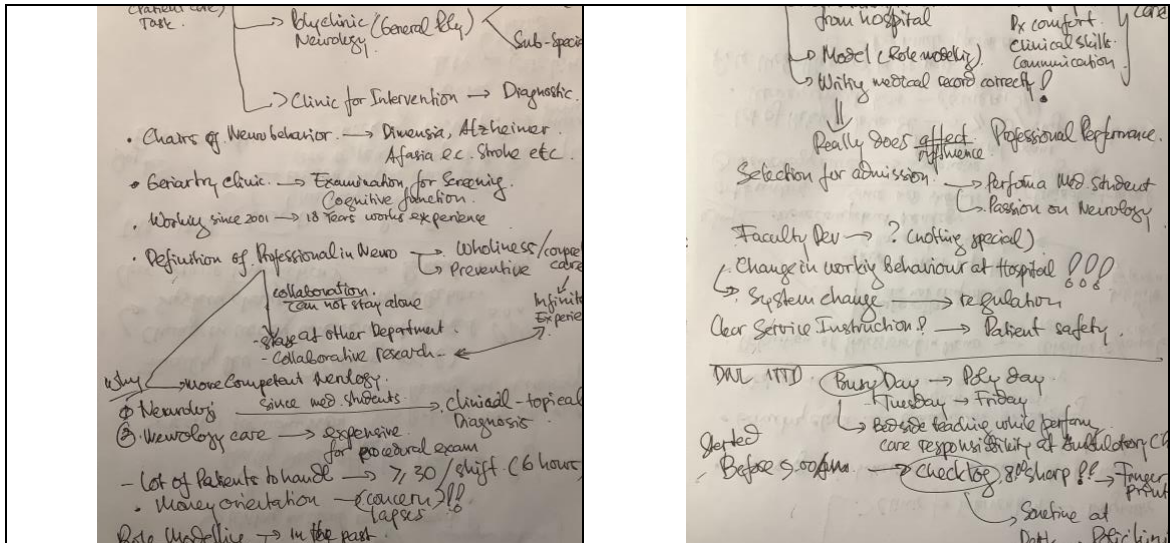 (Patient care)
Task
→ Polyclinic (General Poly)
Neurology
Sub-Special
→ Clinic for Intervention → Diagnostic.
• Chairs of Neurobehavior. → Dimensia, Alzheimer.
Afasia e.c. Stroke etc.
• Geriartry clinic. → Examination for Screening.
Cognitive function.
• Working since 2001 → 18 Years works experience
• Definition of Professional in Neuro → Wholiness/
→ Preventive care
collaboration.
can not stay alone
Infinite
Experie
- stase at other Department.
- Collaborative research
Why → More Competent Nerology.
① Nerology since med. students → clinical - topical
Diagnosis
② Neurology care → expensive
for procedural exam
- Lot of Patients to handl → ≥ 30 / shift (6 hours
• Money orientation → (concern) !!
lapses
Role Modelling → in the past
from hospital
→ Model (Role modeling)
→ Writing medical record correctly !
Px comfort.
Clinical Skills.
Communication
Really does affect Professional Performance.
influence
Selection for admission. → Performa Med. student
→ Passion on Neurology
Faculty Dev → ? (nothing special)
Change in working Behaviour at Hospital !!!
System change → regulation
Clear Service Instruction ? → Patient safety.
Busy Day → Poly day.
- Tuesday → Friday
→ Bedside teaching while perform
care responsibility at ambulatory
Started
Before → Checklog, 8°° sharp !! → Finger
print
→ Sometime at